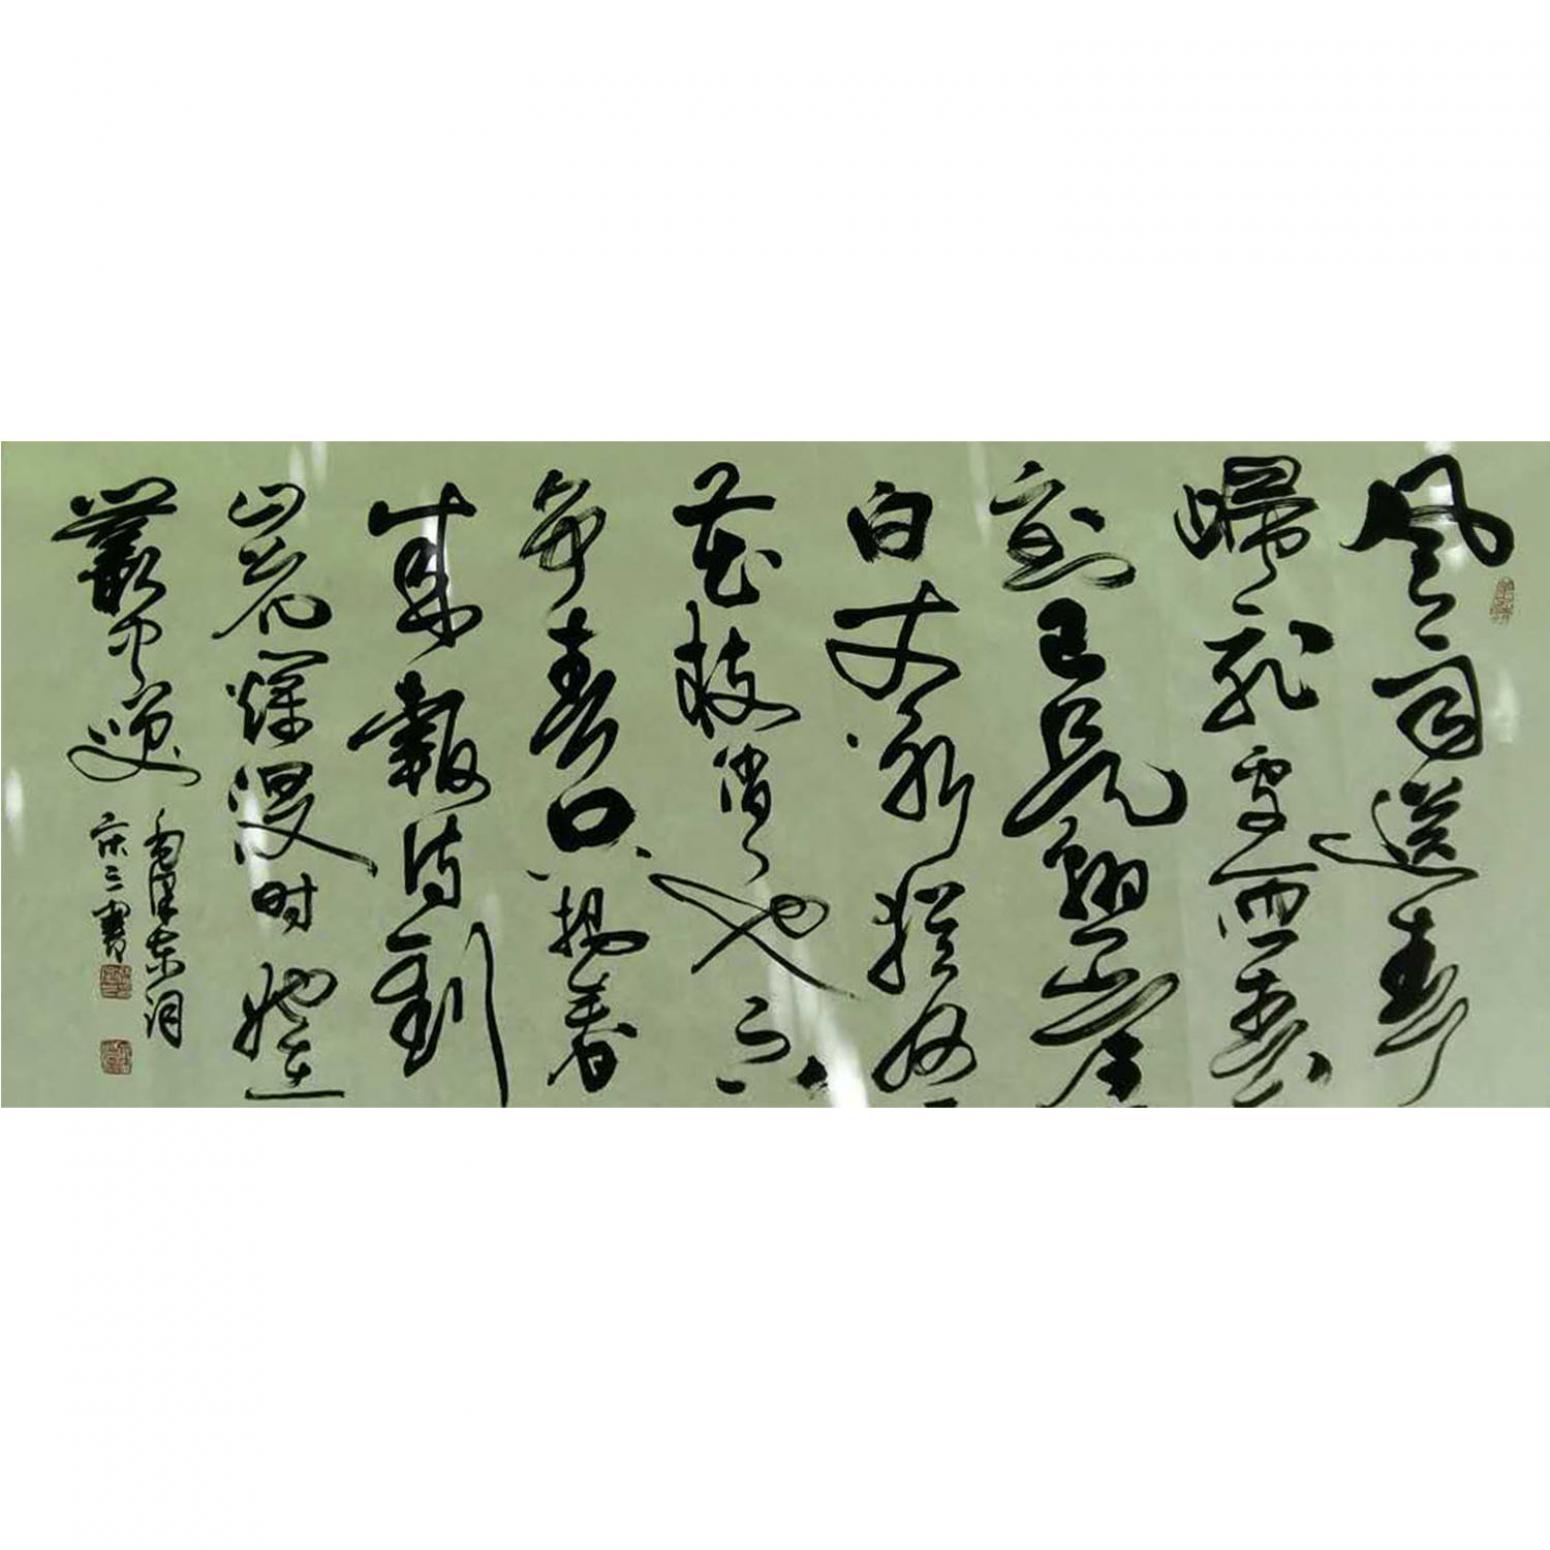 风雨送春
歸飛雪迎春
到已是懸崖
百丈冰猶有
花枝俏俏也不
争春只把春
来報待到
山花爛漫时她在
叢中笑
毛泽东词